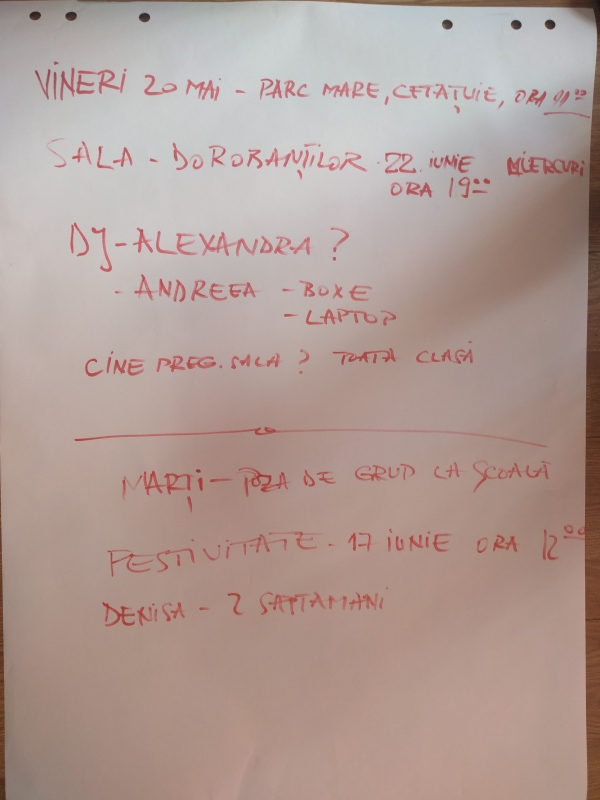 VINERI 20 MAI - PARC MARE, CETĂȚUIE, ORA 11⁰⁰
SALA - DOROBANȚILOR 22 IUNIE MIERCURI
ORA 19⁰⁰
DJ - ALEXANDRA ?
- ANDREEA - BOXE
- LAPTOP
CINE PREG. SALA ? TOATĂ CLASA
MARȚI - POZA DE GRUP LA ȘCOALĂ
FESTIVITATE - 17 IUNIE ORA 12⁰⁰
DENISA - 2 SAPTAMANI